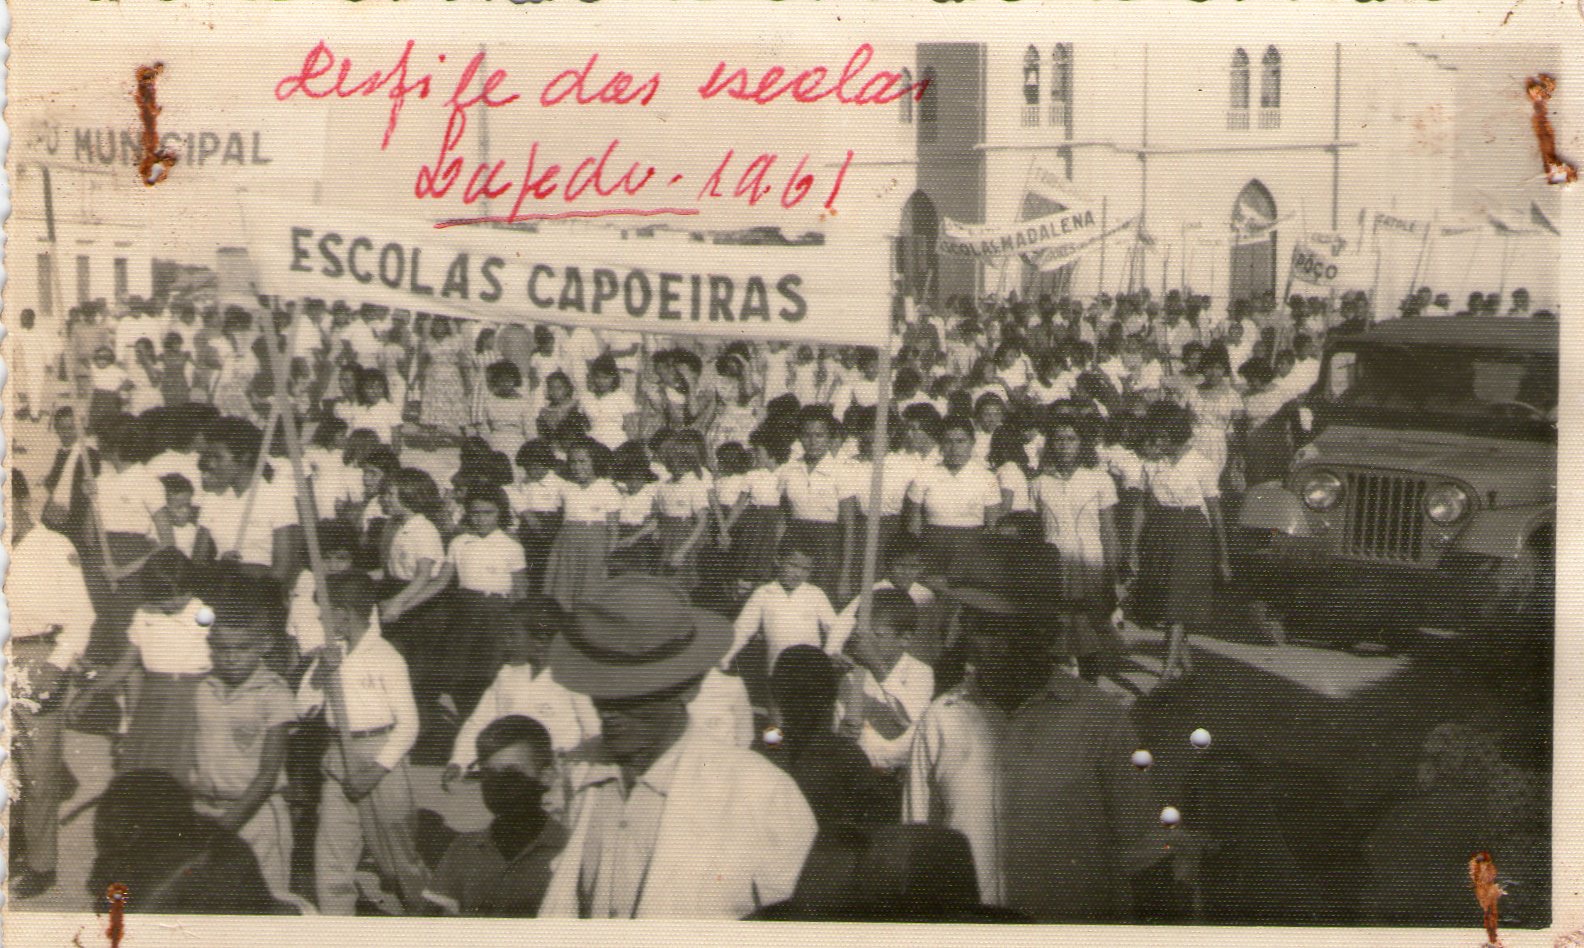 Desfile das escolas
Lajedo. 1961
MUNICIPAL
ESCOLAS CAPOEIRAS
ESCOLAS MADALENA
CATOLÉ
POÇO